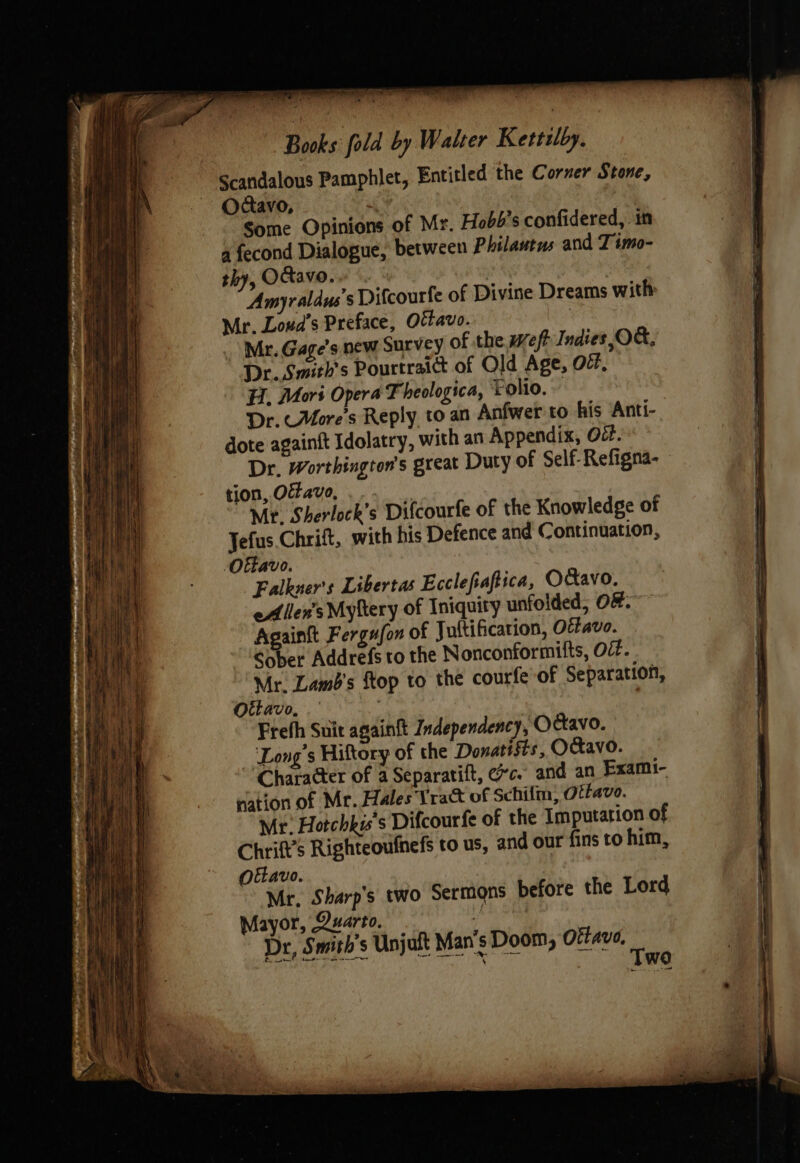 Books ſold by Walter Kettilby.
Scandalous Pamphlet, Entitled the Corner Stone,
Octavo,
Some Opinions of Mr. Hobb's conſidered, in
a ſecond Dialogue, between Philautus and Timo-
thy, Octavo.
Amyraldus's Diſcourſe of Divine Dreams with
Mr. Loud's Preface, Octavo.
Mr. Gage's new Survey of the Weſt Indies, Oct,
Dr. Smith's Pourtraict of Old Age, Oct,
H. Mori Opera Theologica, Folio.
Dr. More's Reply to an Anſwer to his Anti-
dote againſt Idolatry, with an Appendix, Oct.
Dr. Worthington's great Duty of Self-Reſigna-
tion, Octavo,
Mr. Sherlock's Diſcourſe of the Knowledge of
Jeſus Chriſt, with his Defence and Continuation,
Octavo.
Falkner's Libertas Eccleſiaſtica, Octavo,
Allen's Myſtery of Iniquity unfolded, Oct.
Againſt Ferguſon of Juſtification, Octavo.
Sober Addreſs to the Nonconformiſts, Oct.
Mr. Lamb's ſtop to the courſe of Separation,
Octavo,
Freſh Suit againſt Independency, Octavo.
Long's Hiſtory of the Donatiſts, Octavo.
Character of a Separatiſt, &c. and an Exami-
nation of Mr. Hales Tract of Schiſm, Octavo.
Mr. Hotchkis's Diſcourſe of the Imputation of
Chriſt's Righteouſneſs to us, and our ſins to him,
Octavo.
Mr. Sharp's two Sermons before the Lord
Mayor, Quarto.
Dr, Smith's Unjuſt Man's Doom, Octavo,
Two